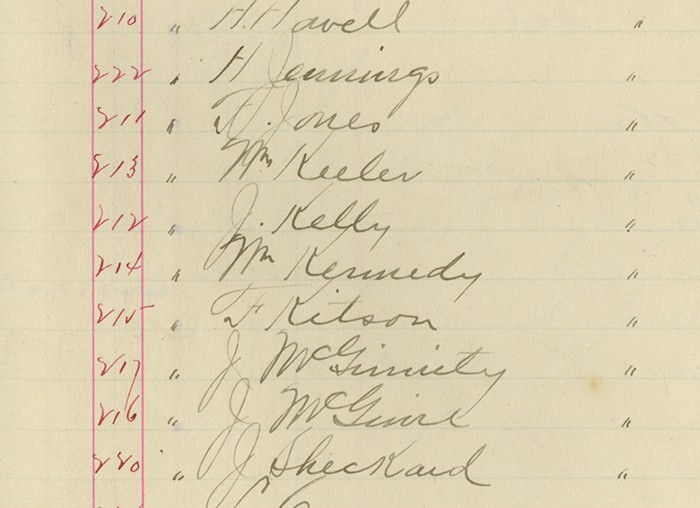 210 " H. Howell "
222 " H Jennings "
211 " F. Jones "
213 " Wm Keeler "
212 " J. Kelly "
214 " Wm Kennedy "
215 " F Kitson "
217 " J McGinnity "
216 " J McGuire "
220 " J Sheckard "